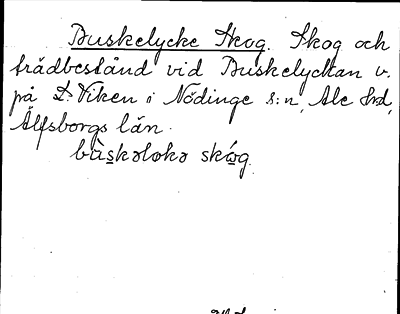 Buskelycke Skog. Skog och
trädbestånd vid Buskelyckan v.
på L:a Viken i Nödinge s:n, Ale hd,
Älfsborgs län.
bùskəlokə skóg